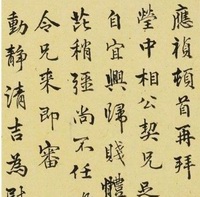 應禎頓首再拜
瑩中相公契兄足
自宜興歸賤體
茫稍彊尚不任
令兄來即審
動靜清吉為慰